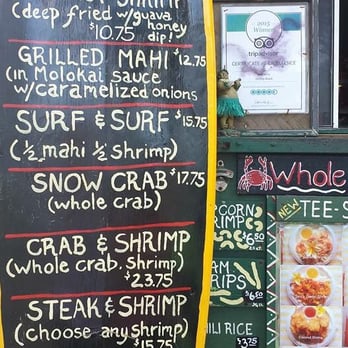 SHRIMP
(deep fried w/guava
honey
$10.75 dip!)
GRILLED MAHI $12.75
(in Molokai sauce
w/caramelized onions
SURF & SURF $15.75
(½ mahi ½ shrimp)
SNOW CRAB $17.75
(whole crab)
CRAB & SHRIMP
(whole crab. shrimp)
$23.75
STEAK & SHRIMP
(choose any shrimp)
$15.75
2015
Winner
tripadvisor
CERTIFICATE of EXCELLENCE
Whole
NEW TEE-S
$6.50
$6.50
ILI RICE
$3.75